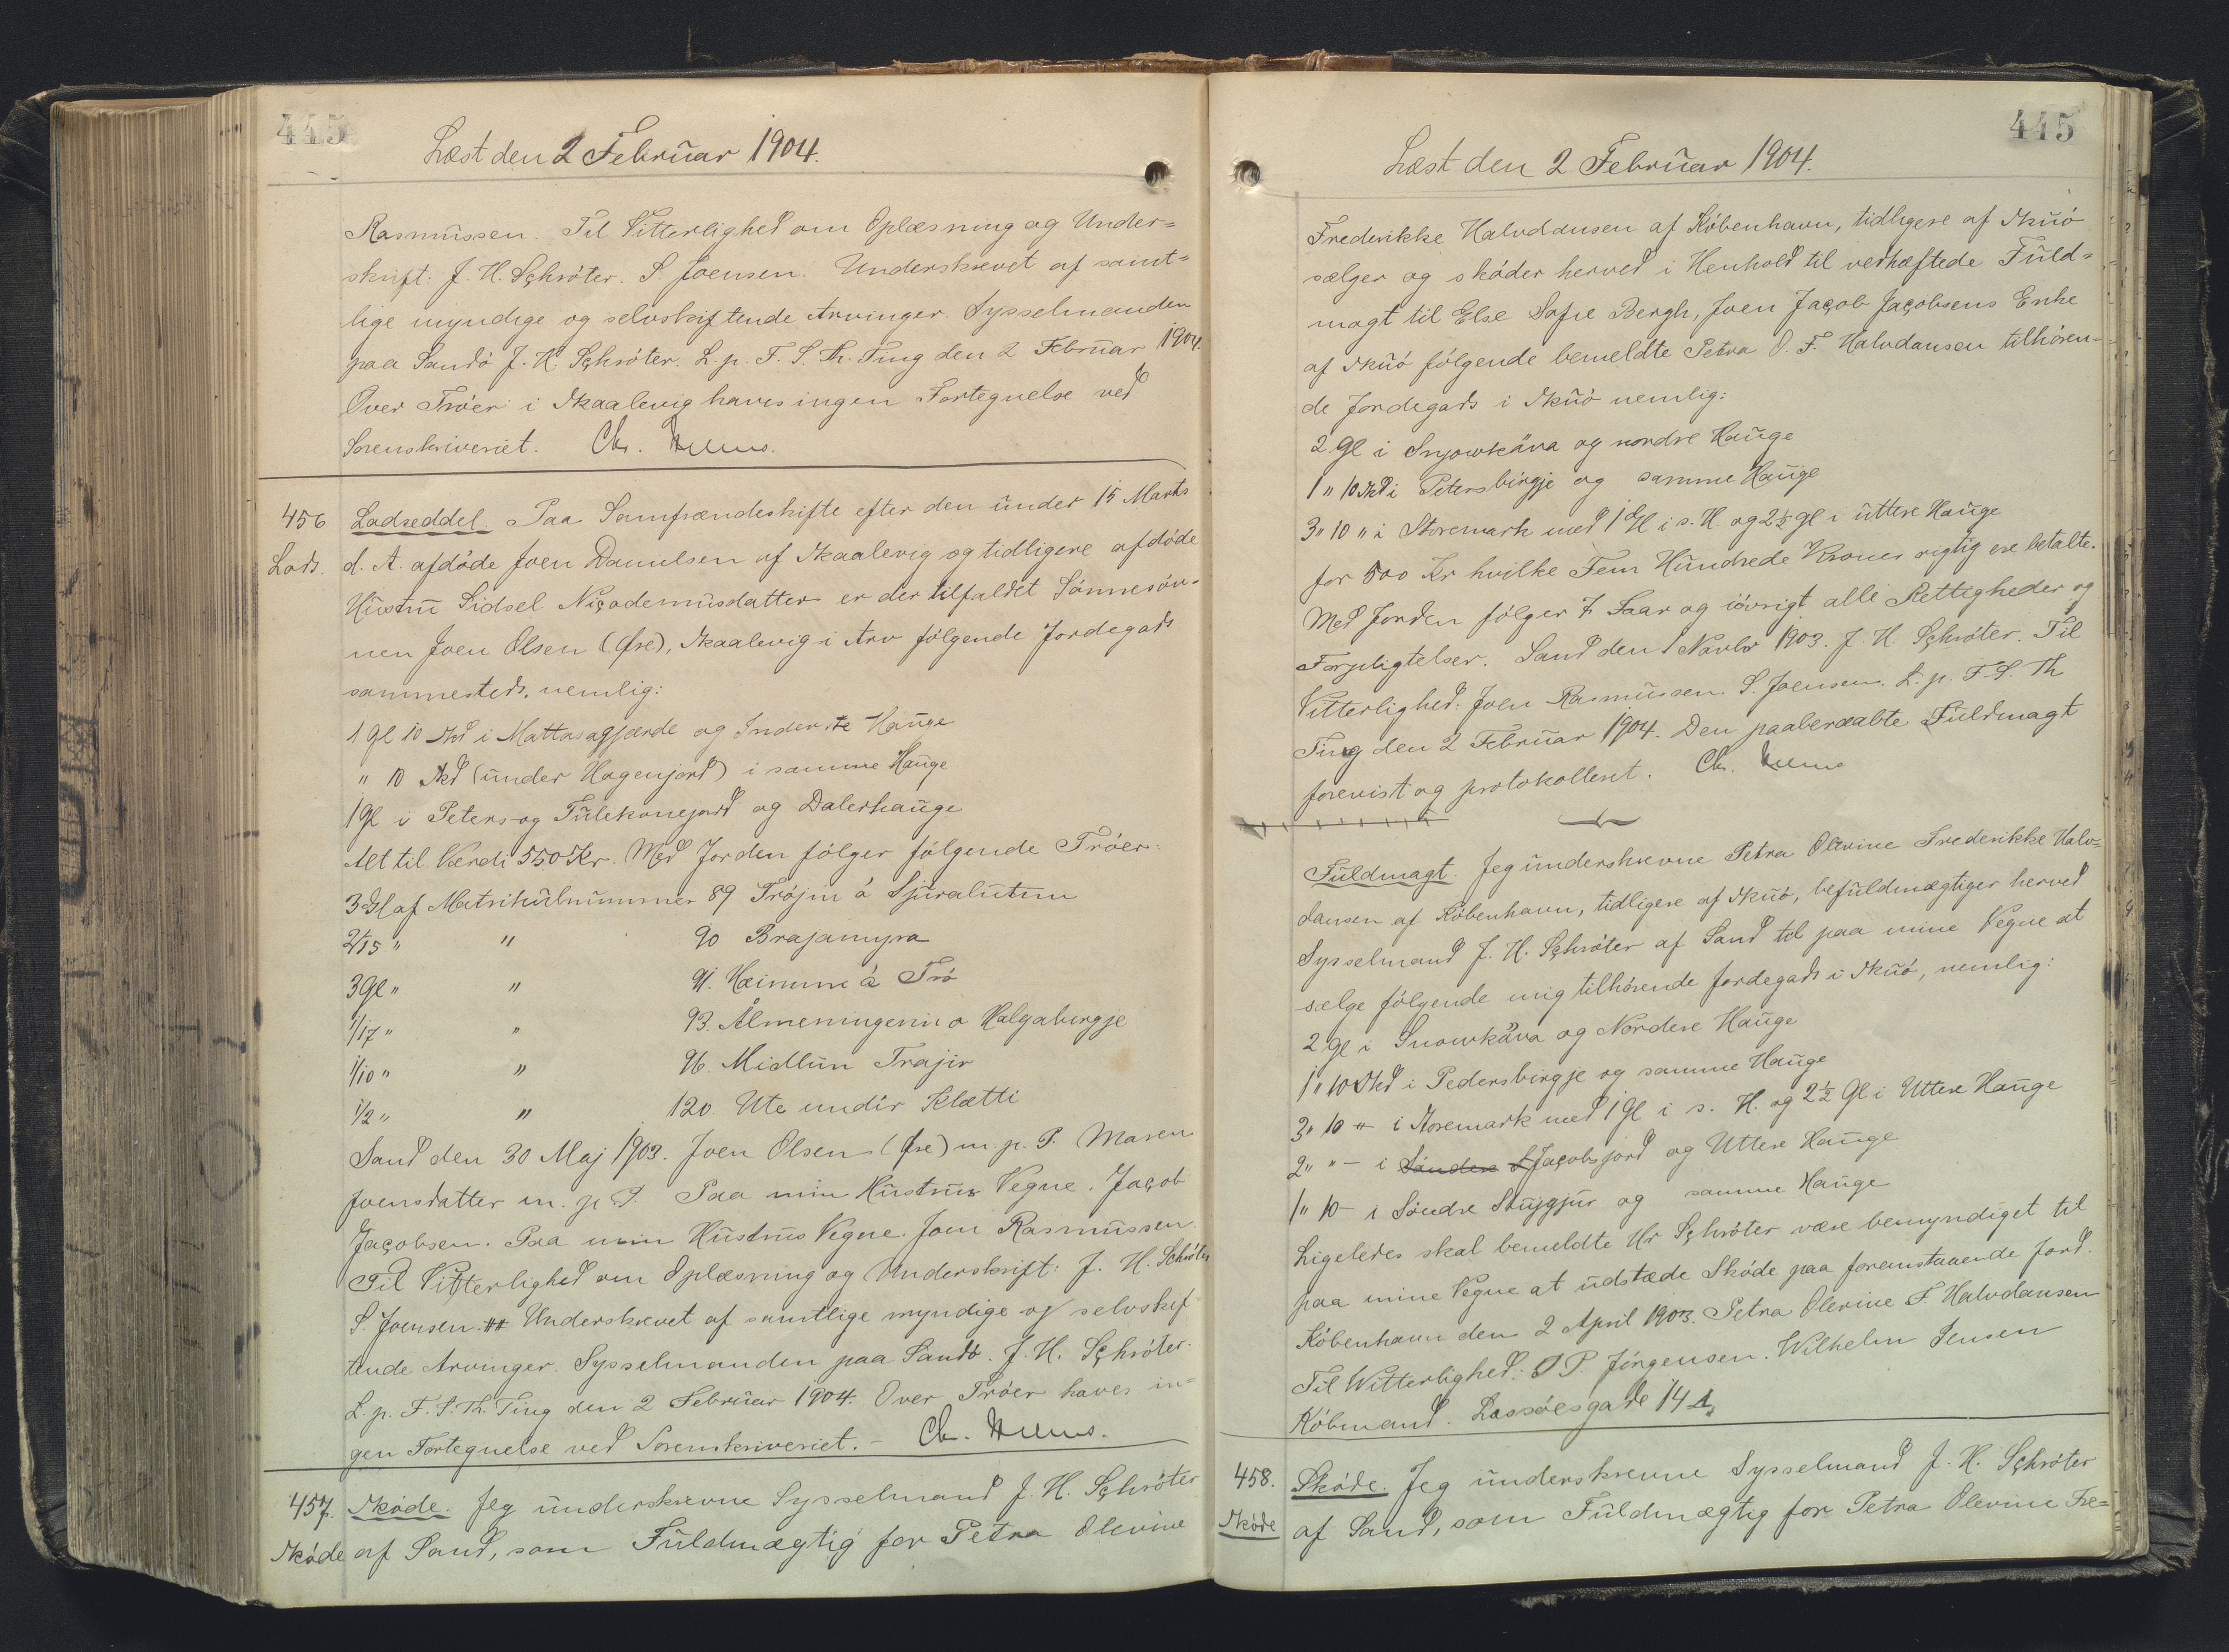 445
Læst den 2 Februar 1904.
Rasmussen. Til Vitterlighed om Oplæsning og Under=
skrift: J. H. Schrøter. S. Joensen. Underskrevet af samt=
lige myndige og selvskiftende Arvinger. Sysselmanden
paa Sandø J. H. Schrøter. L. p. F. S. Th. Ting den 2 Februar 1904.
Over Trøer i Skaalevig haves ingen Fortegnelse ved
Sorenskriveriet. Ch.
456 Ladseddel. Paa Samfrændeskifte efter den under 15 Marts
Lods. d. A. afdøde Joen Danielsen af Skaalevig og tidligere afdøde
Hustru Sidsel Niçodemusdatter er der tilfaldet Sønnesøn-
nen Joen Olsen (Øre), Skaalevig i Arv følgende Jordegods
sammesteds, nemlig:
1 Gl 10 Skd i Mattasagjærde og Inderste Hauge
" 10 Skd (under Hagenjord) i samme Hauge
1 Gl i Peters- og Tulekonejord og Dalerhauge
Alt til Værdi 550 Kr. Med Jorden følger følgende Trøer:
3 Gl af Matrikulnummer 89 Trøjin á Sjúralutum
2/15 " " 90 Brajamyra
3 Gl " " 91. Heimme á Trø
1/17 " " 93. Álmeningenin o Halgabirgje
1/10 " " 96. Midlun Trajir
1/2 " " 120. Ute undir Klætti
Sand den 30 Maj 1903. Joen Olsen (Øre) m. p. P. Maren
Joensdatter m. p. P. Paa min Hustrus Vegne. Jaçob
Jaçobsen. Paa min Hustrus Vegne. Joen Rasmussen.
Til Vitterlighed om Oplæsning og Underskrift: J. H. Schrøter
S. Joensen. Underskrevet af samtlige myndige og selvskif-
tende Arvinger. Sysselmanden paa Sandø. J. H. Sçhrøter.
L. p. F. S. Th. Ting den 2 Februar 1904. Over Trøer haves in=
gen Fortegnelse ved Sorenskriveriet. - Ch.
457. Skøde. Jeg underskrevne Sysselmand J. H. Sçhrøter
Skøde af Sand, som Fuldmægtig for Petra Olevine
445
Læst den 2 Februar 1904.
Frederikke Halvdansen af København, tidligere af Skuø
sælger og skøder herved i Henhold til vedhæftede Fuld=
magt til Else Sofie Bergh, Joen Jaçob Jaçobsens Enke
af Skuø følgende bemeldte Petra O. F. Halvdansen tilhøren-
de Jordegods i Skuø nemlig:
2 Gl i Snjowkáva og nordre Hauge
1 " 10 Skd i Petersbirgje og samme Hauge
3 " 10 " i Storemark med 1 Gl i s. H. og 2½ Gl i uttere Hauge
for 500 Kr hvilke Fem Hundrede Kroner rigtig ere betalte.
Med Jorden følger 7 Faar og iøvrigt alle Rettigheder og
Forpligtelser. Sand den 1 Novbr 1903. J. H. Sçhrøter. Til
Vitterlighed: Joen Rasmussen. S. Joensen. L. p. F. S. Th
Ting den 2 Februar 1904. Den paaberaabte Fuldmagt
forevist og protokolleret. Ch.
Fuldmagt. Jeg underskrevne Petra Olevine Frederikke Halv=
dansen af København, tidligere af Skuø, befuldmægtiger herved
Sysselmand J. H. Sçhrøter af Sand til paa mine Vegne at
sælge følgende mig tilhørende Jordegods i Skuø, nemlig:
2 Gl i Snowkáva og Nordere Hauge
1 " 10 Skd i Pedersbirgje og samme Hauge
3 " 10 " i Storemark med 1 Gl i s. H. og 2½ Gl i Uttere Hauge
2 " " - i Søndere Jaçobsjord og Uttere Hauge
1 " 10 - i Søndre Stujgjur og samme Hauge
Ligeledes skal bemeldte Hr Sçhrøter være bemyndiget til
paa mine Vegne at udstæde Skøde paa foranstaaende Jord.
København den 2 April 1903. Petra Olevine F. Halvdansen
Til Witterlighed: P. Jørgensen. Wilhelm Jensen
Købmand. Læssøesgade 14
458. Skøde. Jeg underskrevne Sysselmand J. H. Sçhrøter
Skøde af Sand, som Fuldmægtig for Petra Olevine Fre=